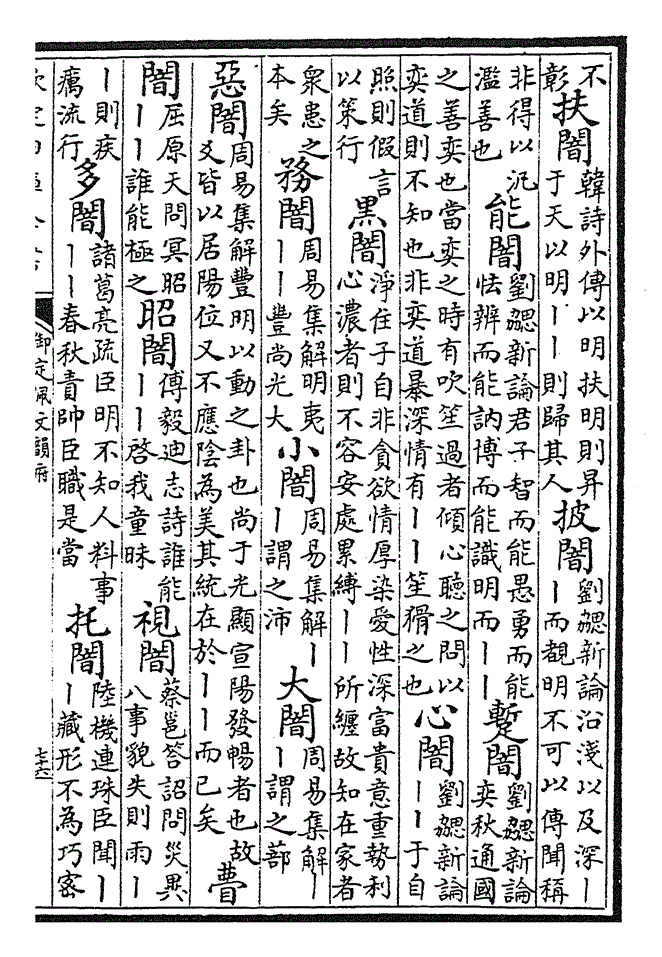 不彰扶闇韓詩外傳以明扶明則昇于天以明丨丨則歸其人披闇劉勰新論沿淺以及深丨丨而覩明不可以傳聞稱
非得以況濫善也能闇劉勰新論君子智而能愚勇而能怯辨而能訥博而能識明而丨丨蹔闇劉勰新論奕秋通國
之善奕也當奕之時有吹笙過者傾心聽之問以奕道則不知也非奕道暴深情有丨丨笙猾之也心闇劉勰新論丨丨于自
照則假言以策行黑闇淨住子自非貪欲情厚染愛性深富貴意重勢利心濃者則不容安處累縛丨丨所纏故知在家者
衆患之本矣務闇周易集解明夷丨丨豐尚光大小闇周易集解丨丨謂之沛大闇周易集解丨丨謂之蔀
惡闇周易集解豐明以動之卦也尚于光顯宣陽發暢者也故爻皆以居陽位又不應陰為美其統在於丨丨而已矣瞢
闇屈原天問冥昭丨丨誰能極之昭闇傅毅迪志詩誰能丨丨啓我童昧視闇蔡邕答詔問災異八事貌失則雨丨
丨則疾癘流行多闇諸葛亮疏臣明不知人料事丨丨春秋責帥臣職是當托闇陸機連珠臣聞丨丨藏形不為巧密
御定佩文韻府